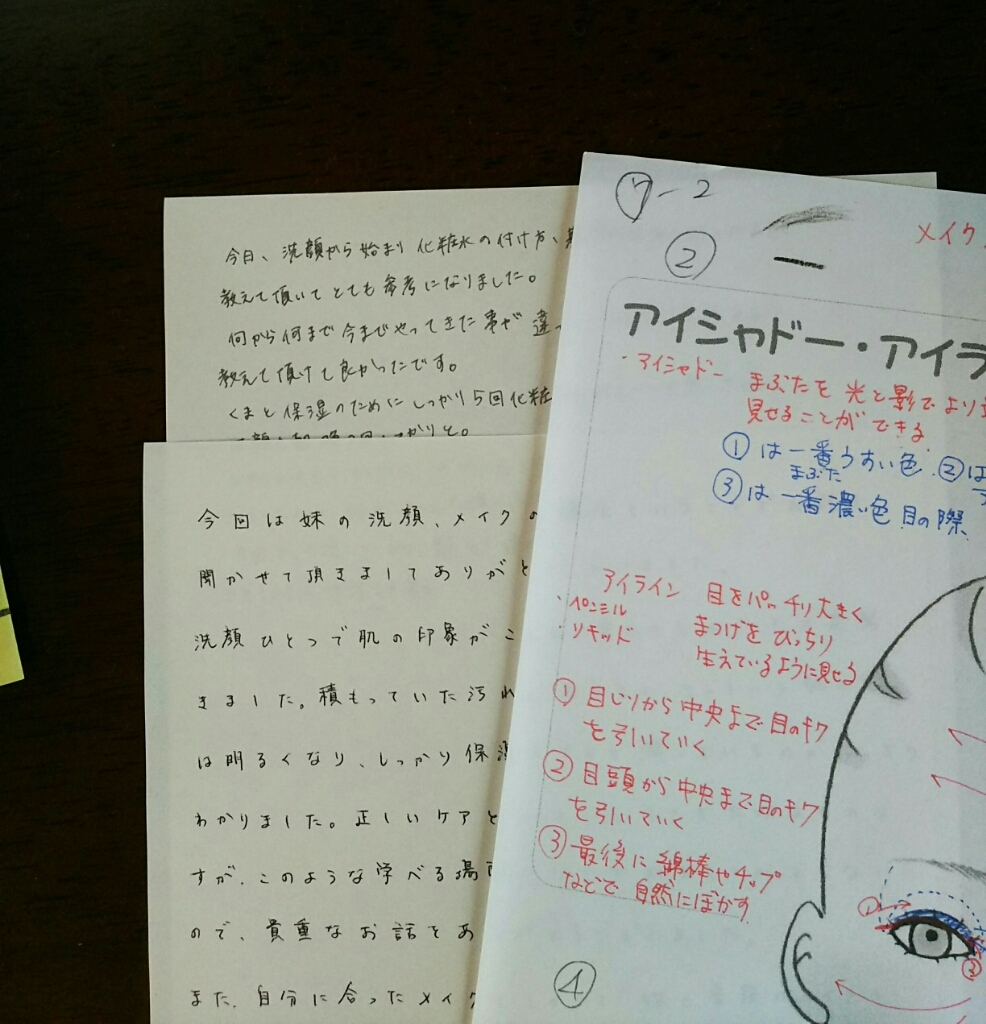 今日、洗顔から始まり 化粧水の付け方、
教えて頂いて とても参考になりました。
何から何まで 今までやってきた事が 違っ
教えて頂けて良かったです。
くまと 保湿のために しっかり5回化粧
今回は妹の洗顔、メイクの
聞かせて頂きましてありがと
洗顔ひとつで肌の印象がこ
きました。積もっていた汚れ
は明るくなり、しっかり保湿
わかりました。正しいケアと
すが、このような学べる場
ので、貴重なお話をあ
また、自分に合ったメイク
②
メイク
アイシャドー・アイラ
・アイシャドー まぶたを 光と影で より
見せることができる
①は一番うすい色 ②は
まぶた
③は一番濃い色 目の際
アイライン 目をパッチリ大きく
・ペンシル まつげを びっちり
・リキッド 生えているように見せる
① 目じりから中央まで目のキワ
を引いていく
② 目頭から中央まで目のキワ
を引いていく
③ 最後に 綿棒やチップ
などで 自然にぼかす
④